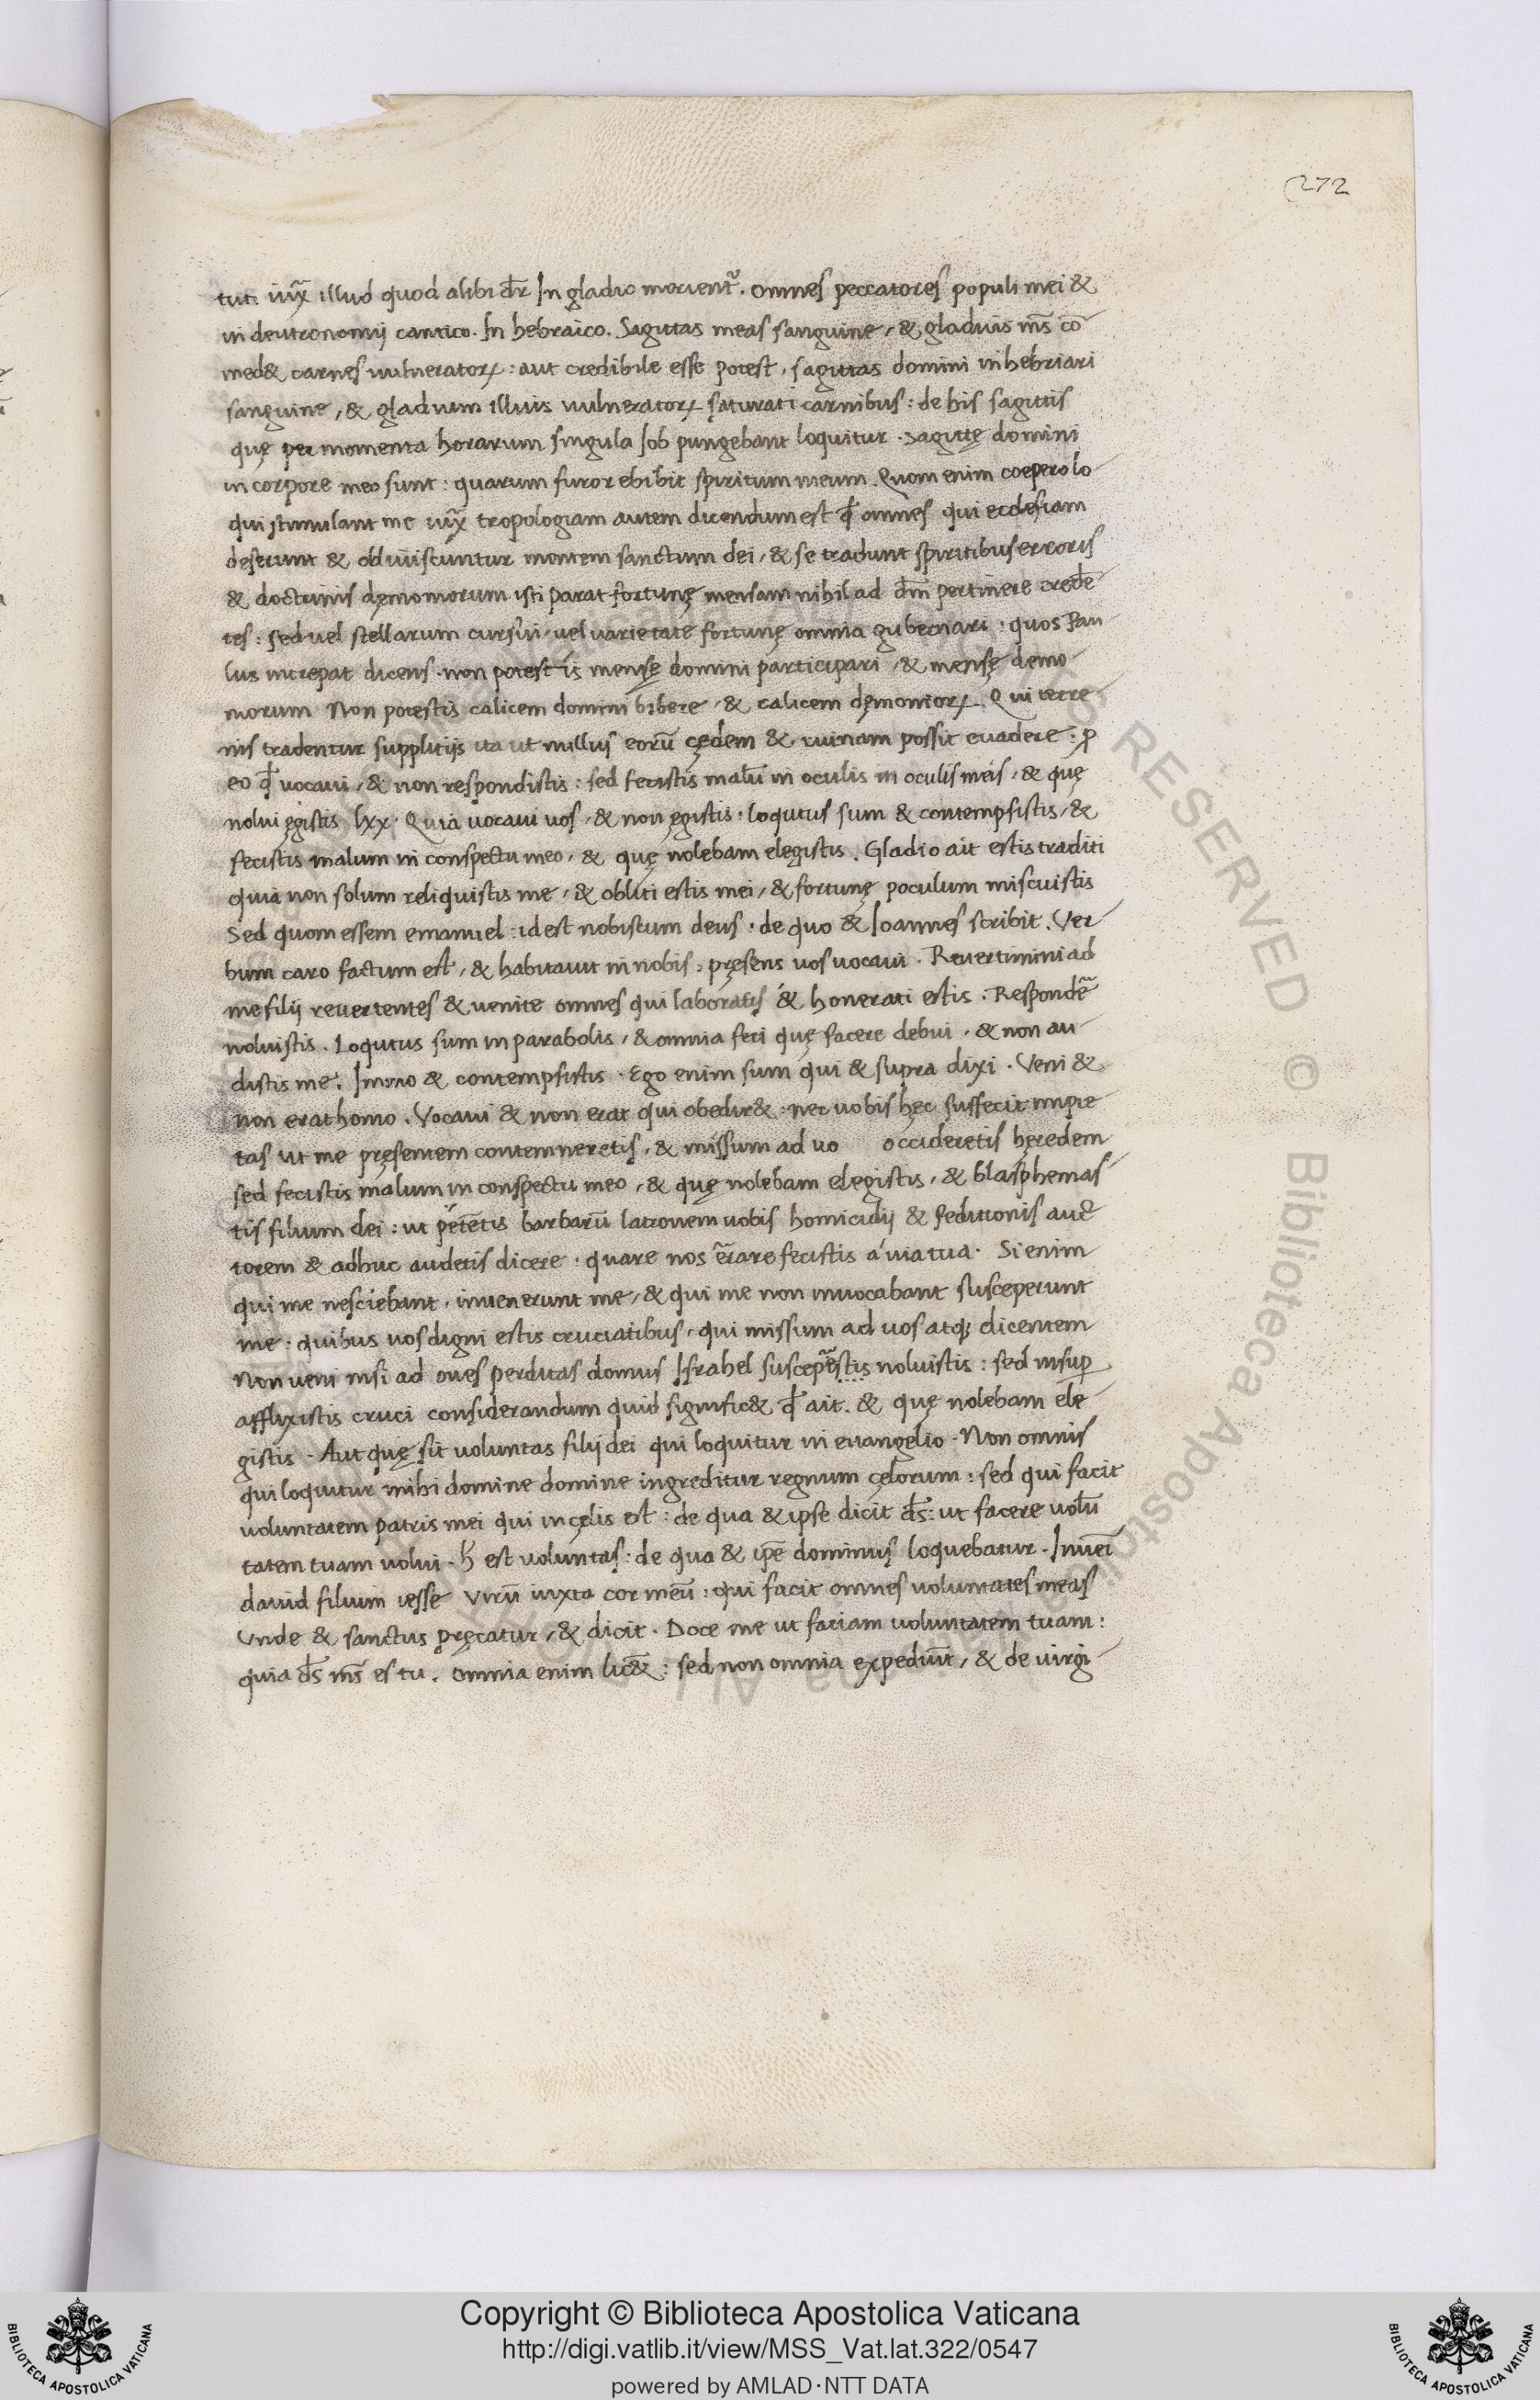 272
tuti iuxͣ illud quod alibi dr̄ In gladio morient᷑. omnes peccatores populi mei &
in deutronomij cantico. In hebraico. Sagittas meas sanguine, & gladius ms̄ cō
med& carnes vulneratoꝝ: aut credibile esse potest, sagittas domini inhebriari
sanguine, & gladium illius vulneratoꝝ saturari carnibus: de his sagittis
quę per momenta horarum singula Iob pungebant loquitur. Sagittę domini
in corpore meo sunt: quarum furor ebibit spiritum meum. Quom enim coepero lo
qui stimulant me iuxͣ tropologiam autem dicendum est ꝙ omnes qui ecclesiam
deserunt & obliviscuntur montem sanctum dei, & se tradunt spiritibus erroris
& doctrinis dęmoniorum isti parat fortunę mensam nihil ad dm̄ pertinere credē
tes: sed uel stellarum cursui, uel varietate fortunę omnia gubernari: quos Pau
lus increpat dicens. non potestis mensę domini participari, & mensę demo
niorum Non potestis calicem domini bibere, & calicem dęmonioꝝ. Qui terre
nis tradentur supplitijs ita ut nullus eorū cędem & ruinam possit euadere: ꝓ
eo ꝙ vocaui, & non respondistis: sed fecistis malū in oculis in oculis meis, & quę
nolui egistis lxx. Quia uocaui uos, & non egistis. loqutus sum & contempsistis, &
fecistis malum in conspectu meo, & quę nolebam elegistis. Gladio ait estis traditi
quia non solum reliquistis me, & obliti estis mei, & fortunę poculum miscuistis
Sed quom essem emanuel: id est nobiscum deus: de quo & Ioannes scribit. Ver
bum caro factum est, & habitauit in nobis, pręsens uos uocaui. Revertimini ad
me filij revertentes & venite omnes qui laboratis & honerati estis. Respondē
noluistis. Loqutus sum in parabolis, & omnia feci quę facere debui, & non au
distis me. Immo & contempsistis. Ego enim sum qui & supra dixi. Veni &
non erat homo. Vocaui & non erat qui obedir&: nec uobis hęc suffecit impie
tas ut me pręsentem contemneretis, & missum ad uo occideretis hęredem
sed fecistis malum in conspectu meo, & quę nolebam elegistis, & blasphemas
tis filium dei: ut petētis barbarū latronem uobis homicidij & seditionis auc
torem & adhuc audetis dicere. quare nos errare fecistis a uia tua. Si enim
qui me nesciebant, invenerunt me, & qui me non invocabant susceperunt
me. quibus uos digni estis cruciatibus, qui missum ad uos atq; dicentem
Non veni nisi ad oues perditas domus Israhel suscepestis noluistis: sed insuꝑ
afflixistis cruci considerandum quid signific& ꝙ ait. & quę nolebam ele
gistis. Aut quę sit voluntas filij dei qui loquitur in evangelio. Non omnis
qui loquitur mihi domine domine ingreditur regnum cęlorum: sed qui facit
voluntatem patris mei qui in cęlis est: de qua & ipse dicit ds̄: ut facere volū
tatem tuam volui. h̄ est voluntas: de qua & ip̄e dominus loquebatur. Inueī
david filium iesse virū iuxta cor meū: qui facit omnes voluntates meas
Vnde & sanctus pręcatur, & dicit. Doce me ut faciam voluntatem tuam:
quia ds̄ ms̄ es tu. Omnia enim lic&̄: sed non omnia expediūt, & de virgi
RIGHTS RESERVED © Biblioteca Apostolica Vaticana ALL
BIBLIOTECA APOSTOLICA VATICANA
Copyright © Biblioteca Apostolica Vaticana
http://digi.vatlib.it/view/MSS_Vat.lat.322/0547
powered by AMLAD·NTT DATA
BIBLIOTECA APOSTOLICA VATICANA